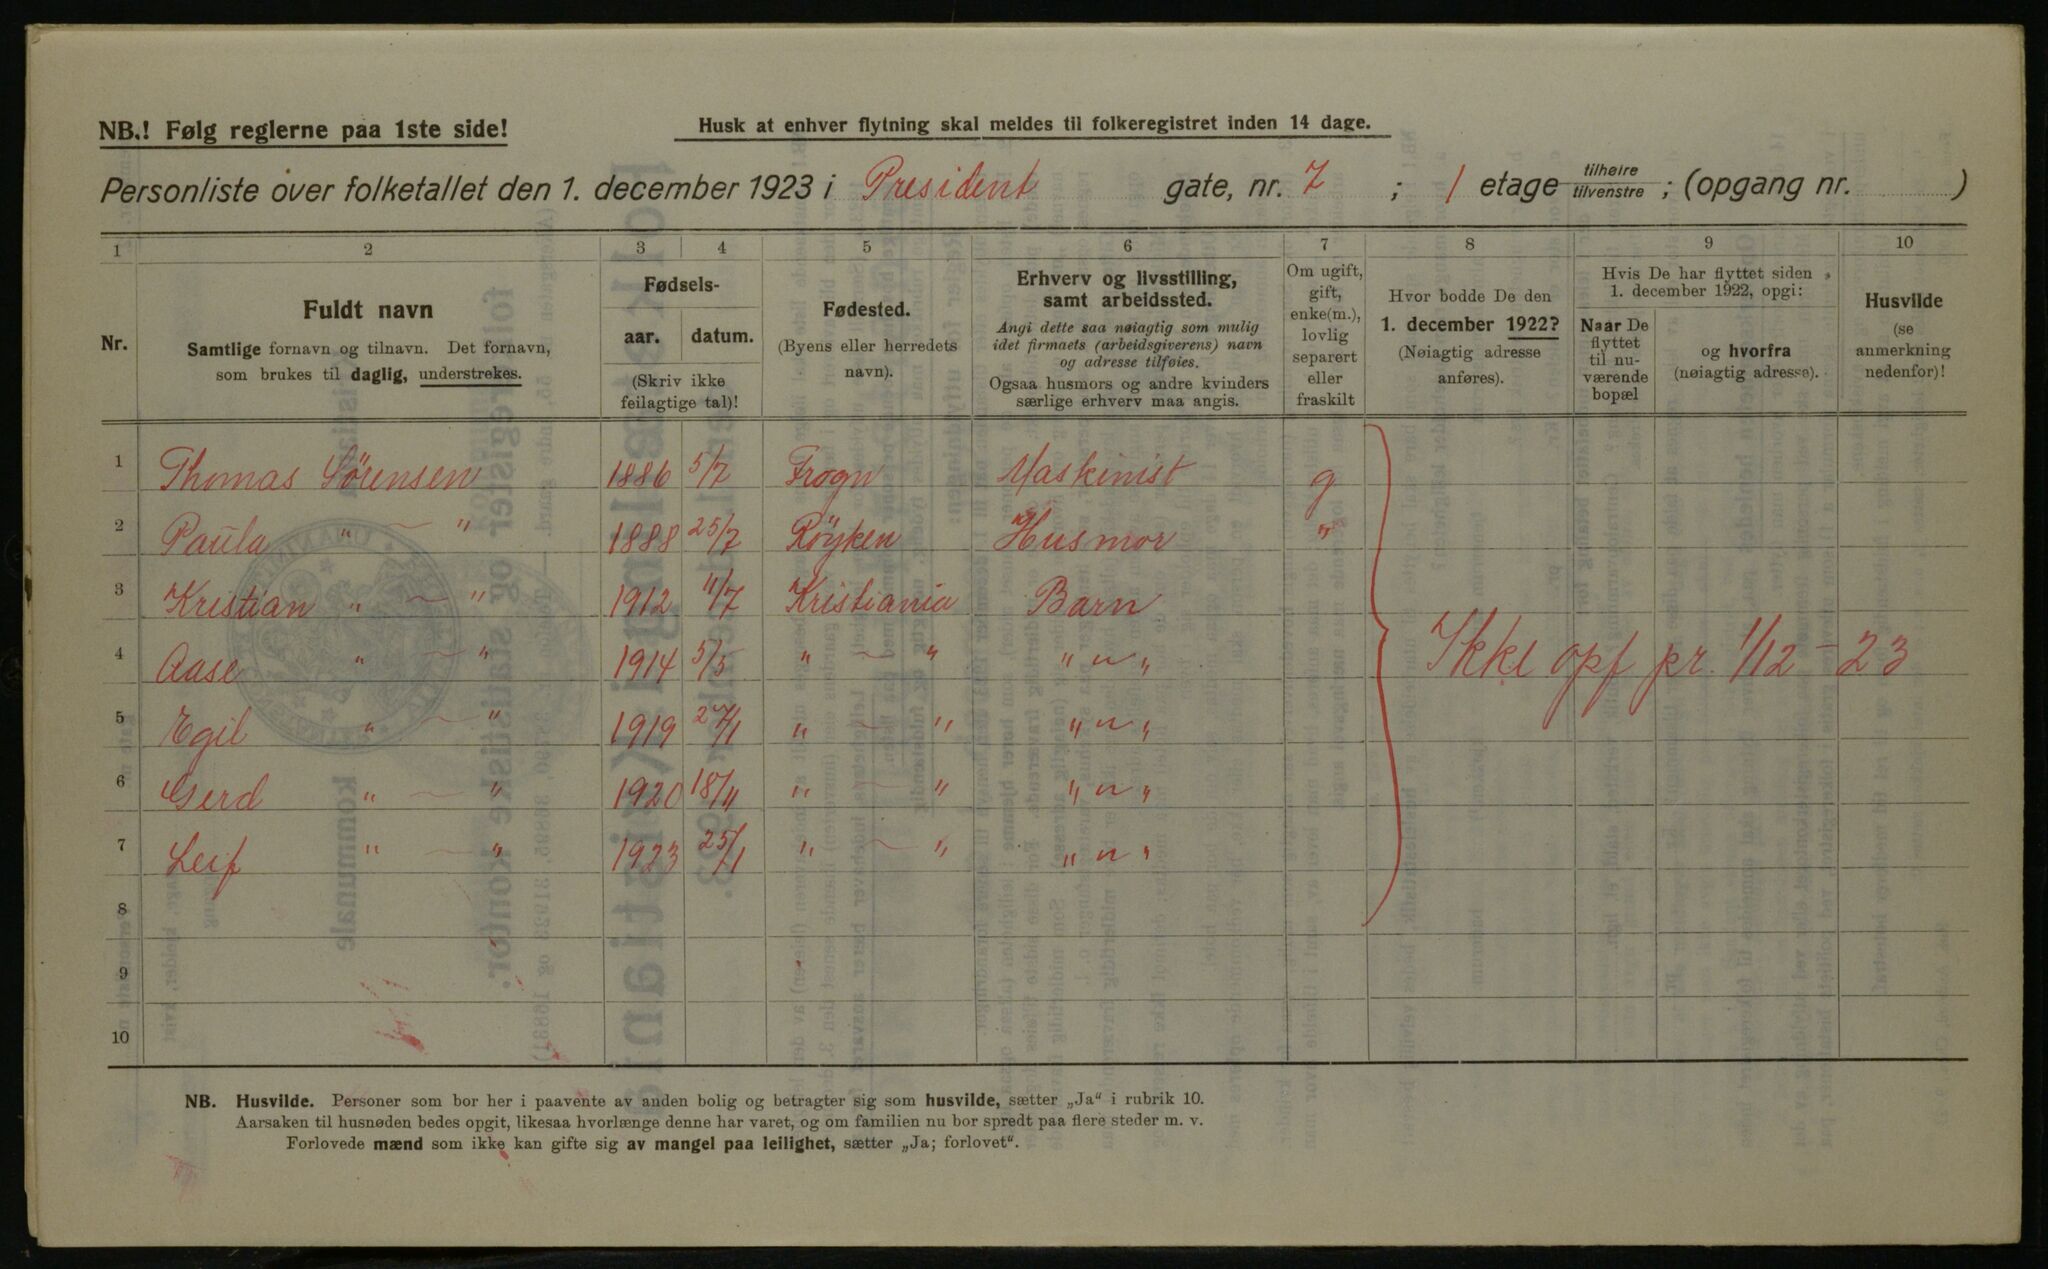 NB.! Følg reglerne paa 1ste side!
Husk at enhver flytning skal meldes til folkeregistret inden 14 dage.
Personliste over folketallet den 1. december 1923 i President gate, nr. 7 ; 1 etage tilhøire / tilvenstre ; (opgang nr. )
1 2 3 4 5 6 7 8 9 10
Nr.
Fuldt navn
Samtlige fornavn og tilnavn. Det fornavn,
som brukes til daglig, understrekes.
Fødsels-
aar. datum.
(Skriv ikke
feilagtige tal)!
Fødested.
(Byens eller herredets
navn).
Erhverv og livsstilling,
samt arbeidssted.
Angi dette saa nøiagtig som mulig
idet firmaets (arbeidsgiverens) navn
og adresse tilføies.
Ogsaa husmors og andre kvinders
særlige erhverv maa angis.
Om ugift,
gift,
enke(m.),
lovlig
separert
eller
fraskilt
Hvor bodde De den
1. december 1922?
(Nøiagtig adresse
anføres).
Hvis De har flyttet siden
1. december 1922, opgi:
Naar De
flyttet
til nu-
værende
bopæl
og hvorfra
(nøiagtig adresse).
Husvilde
(se
anmerkning
nedenfor)!
1 Thomas Sörensen 1886 5/7 Frogn Maskinist g
2 Paula " — " 1888 25/7 Röyken Husmor "
3 Kristian " — " 1912 11/7 Kristiania Barn
4 Aase " — " 1914 5/5 " — " " " "
Ikke opf pr. 1/12 – 23
5 Egil " — " 1919 27/1 " — " " " "
6 Gerd " — " 1920 18/11 " — " " " "
7 Leif " — " 1923 25/1 " — " " " "
8
9
10
NB. Husvilde. Personer som bor her i paavente av anden bolig og betragter sig som husvilde, sætter „Ja“ i rubrik 10.
Aarsaken til husnøden bedes opgit, likesaa hvorlænge denne har varet, og om familien nu bor spredt paa flere steder m. v.
Forlovede mænd som ikke kan gifte sig av mangel paa leilighet, sætter „Ja; forlovet“.